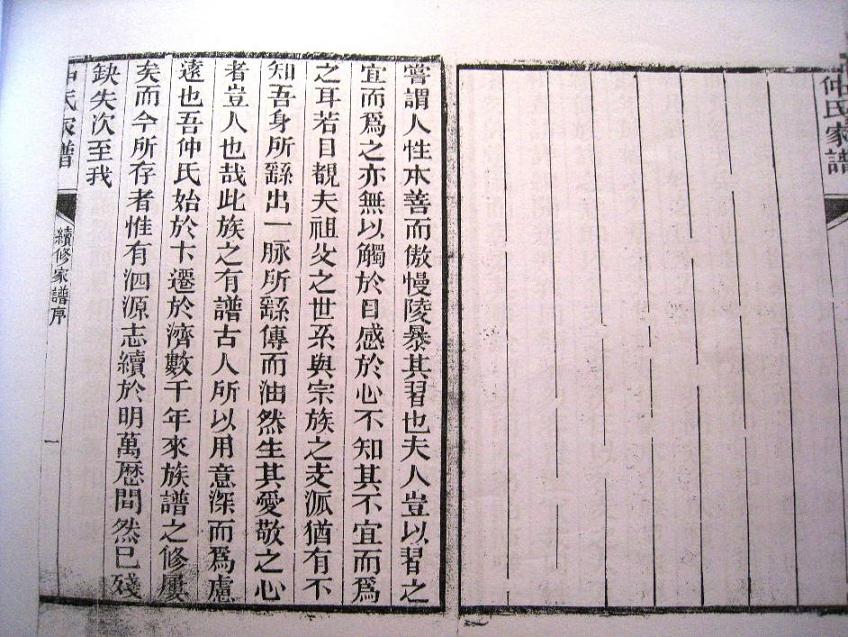 仲氏家譜
嘗謂人性本善而傲慢陵暴其習也夫人豈以習之
宜而爲之亦無以觸於目感於心不知其不宜而爲
之耳若目覩夫祖父之世系與宗族之支派猶有不
知吾身所繇出一脉所繇傳而油然生其愛敬之心
者豈人也哉此族之有譜古人所以用意深而爲慮
遠也吾仲氏始於卞遷於濟數千年來族譜之修屢
矣而今所存者惟有泗源志續於明萬曆間然已殘
缺失次至我
仲氏家譜
續修家譜序
一